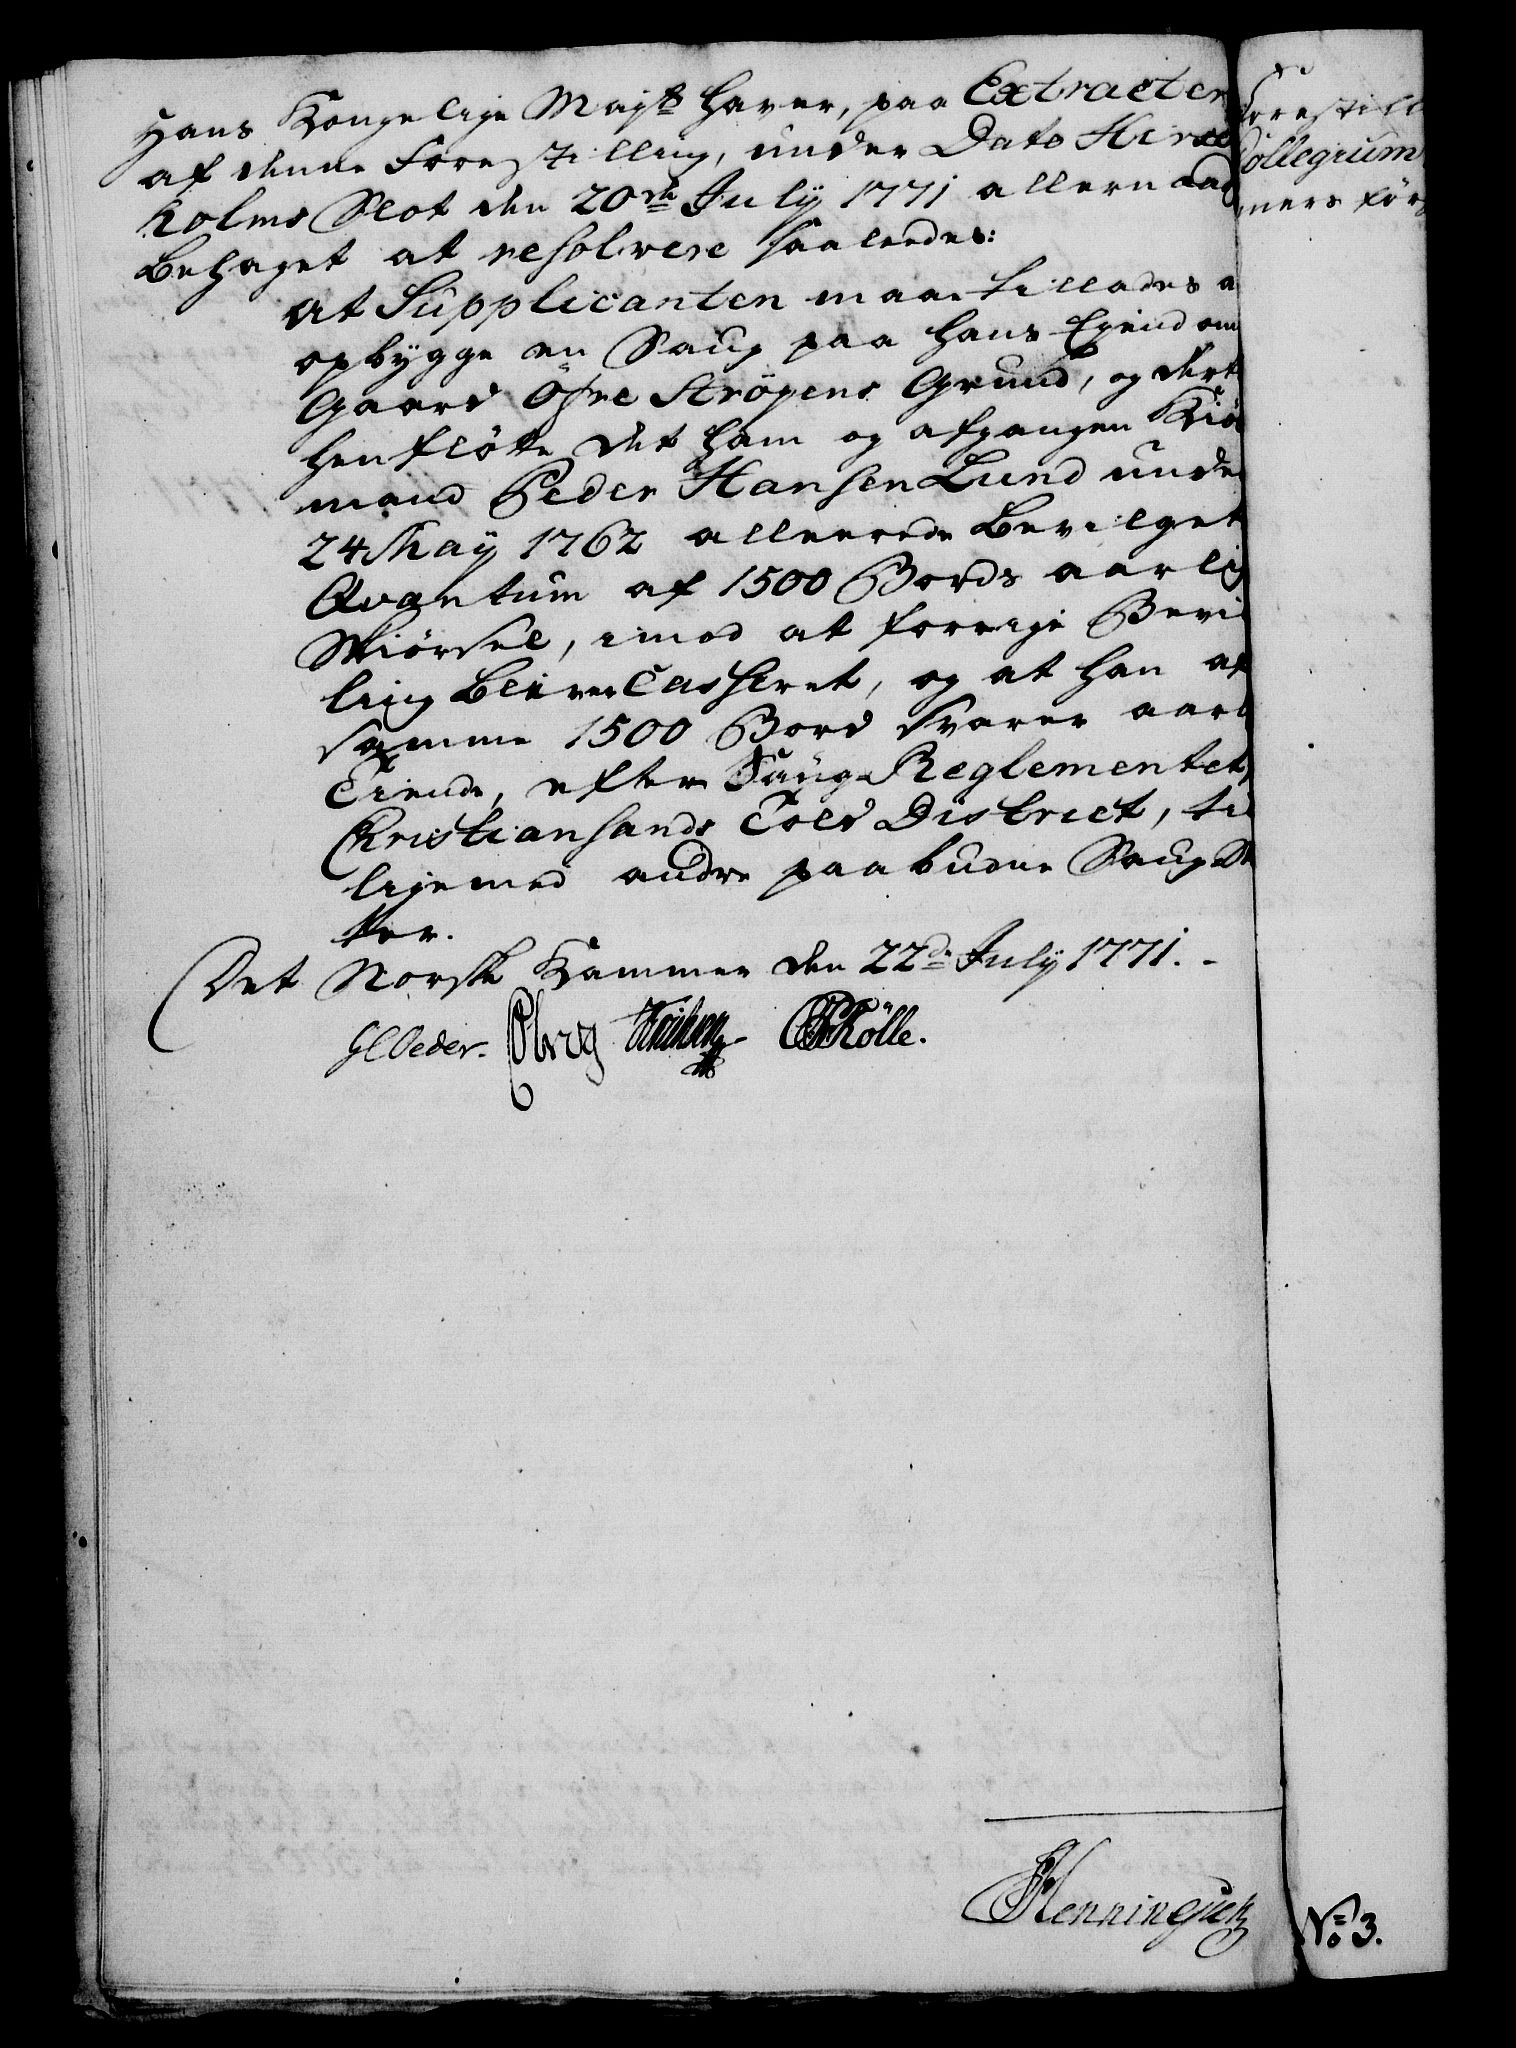 Hans Kongelige Majts haver, paa Extracten
af denne Forestilling, under Dato Hirsch
holms Slot den 20de July 1771 allernaad
behaget at resolvere saaledes:
at Supplicanten maae tillades a
opbygge en Saug paa hans Eiendom
Gaard Öfre Ströpens Grund, og dert
henflötte det ham og afgangen Kiö
mand Peder Hansen Lund unde
24 May 1762 allereede bevilget
Qvantum af 1500 Bords aarlig
Skiörsel, imod at forrige Bevil
ling bliver Casseret, og at han af
samme 1500 Bord svarer aarl
Tiende, efter Saug-Reglementet
Christiansands Told District, til
ligemed andre paabudne Saug-Sk
ter.
Det Norske Kammer den 22de July 1771.
GCOeder.
Rölle.
Forestill
Collegium
mers förs
No 3.